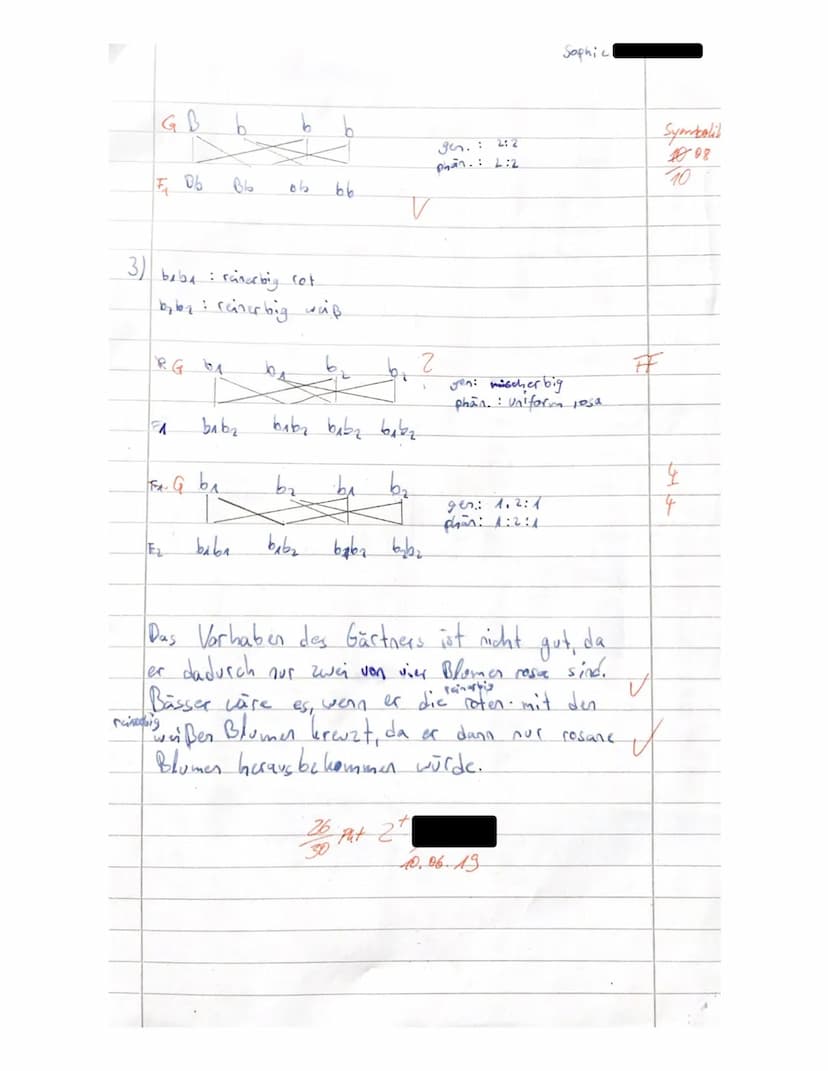 Sophie
G B b b b
gen. : 2:2
Symbolik
phän. : 2:2
10 08
10
F1 Bb Bb bb bb
V
3) b1b1 : reinerbig rot
b2b2 : reinerbig weiß
P. G b1 b1 b2 b2 ?
FF
gen: mischerbig
phän. : uniform rosa
F1 b1b2 b1b2 b1b2 b1b2
F1. G b1 b2 b1 b2
4
4
gen.: 1:2:1
phän: 1:2:1
F2 b1b1 b1b2 b1b2 b2b2
Das Vorhaben des Gärtners ist nicht gut, da
er dadurch nur zwei von vier Blumen rosa sind.
reinerbig
Bässer wäre es, wenn er die roten mit den
reinerbig
weißen Blumen kreuzt, da er dann nur rosane
Blumen herausbekommen würde.
26
30 Pkt 2+
10.06.19